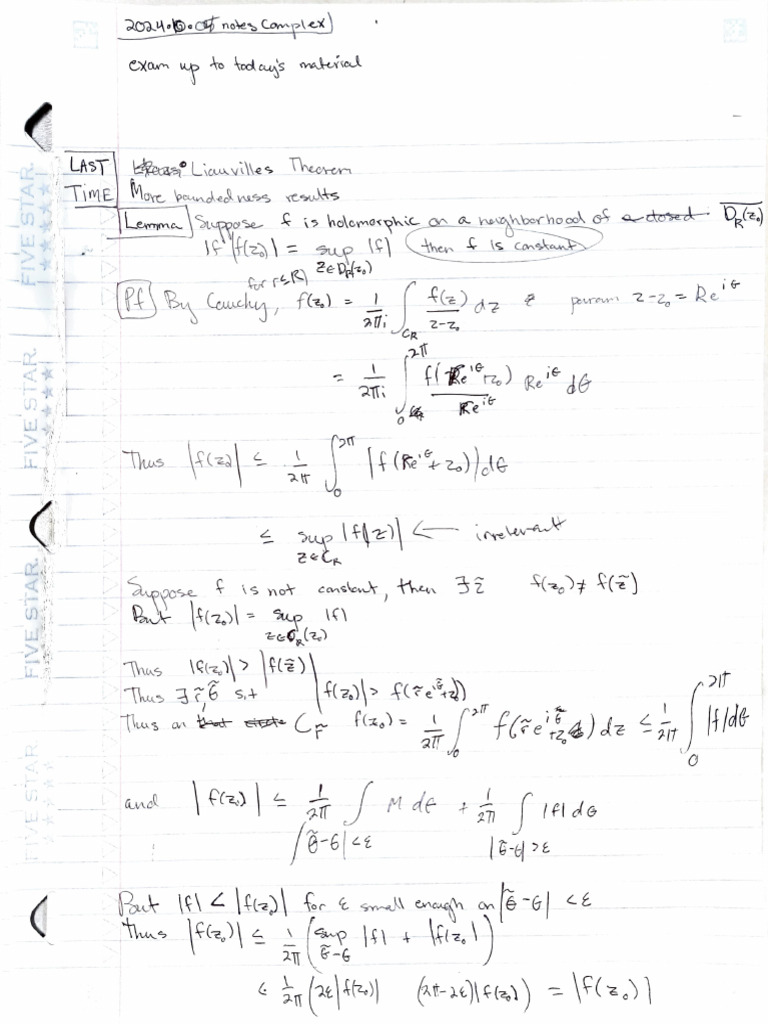 2024.10.04 notes Complex
exam up to today's material
LAST TIME Liauvilles Theorem
More boundedness results
Lemma Suppose f is holomorphic on a neighborhood of a closed \overline{D_R(z_0)}
If |f(z_0)| = sup_{z∈D_R(z_0)} |f| then f is constant
Pf By Cauchy, (for r≤R) f(z_0) = \frac{1}{2πi} ∫_{C_R} \frac{f(z)}{z-z_0} dz param z-z_0 = Re^{iθ}
= \frac{1}{2πi} ∫_0^{2π} \frac{f(Re^{iθ}+z_0)}{Re^{iθ}} Re^{iθ} dθ
Thus |f(z_0)| ≤ \frac{1}{2π} ∫_0^{2π} |f(Re^{iθ}+z_0)| dθ
≤ sup_{z∈C_R} |f(z)| ← irrelevant
Suppose f is not constant, then ∃ \tilde{z} f(z_0) ≠ f(\tilde{z})
But |f(z_0)| = sup_{z∈D_R(z_0)} |f|
Thus |f(z_0)| > |f(\tilde{z})|
Thus ∃ \tilde{r}, \tilde{θ} s.t |f(z_0)| > f(\tilde{r}e^{i\tilde{θ}}+z_0)
Thus on C_{\tilde{r}} f(z_0) = \frac{1}{2π} ∫_0^{2π} f(\tilde{r}e^{iθ}+z_0) dz ≤ \frac{1}{2π} ∫_0^{2π} |f| dθ
and |f(z_0)| ≤ \frac{1}{2π} ∫_{|\tilde{θ}-θ|<ε} M dθ + \frac{1}{2π} ∫_{|\tilde{θ}-θ|>ε} |f| dθ
But |f| < |f(z_0)| for ε small enough on |\tilde{θ}-θ| < ε
thus |f(z_0)| ≤ \frac{1}{2π} ( sup_{\tilde{θ}-θ} |f| + |f(z_0)| )
< \frac{1}{2π} (2ε|f(z_0)| (2π-2ε)|f(z_0)|) = |f(z_0)|
FIVE STAR
FIVE STAR
FIVE STAR
FIVE STAR